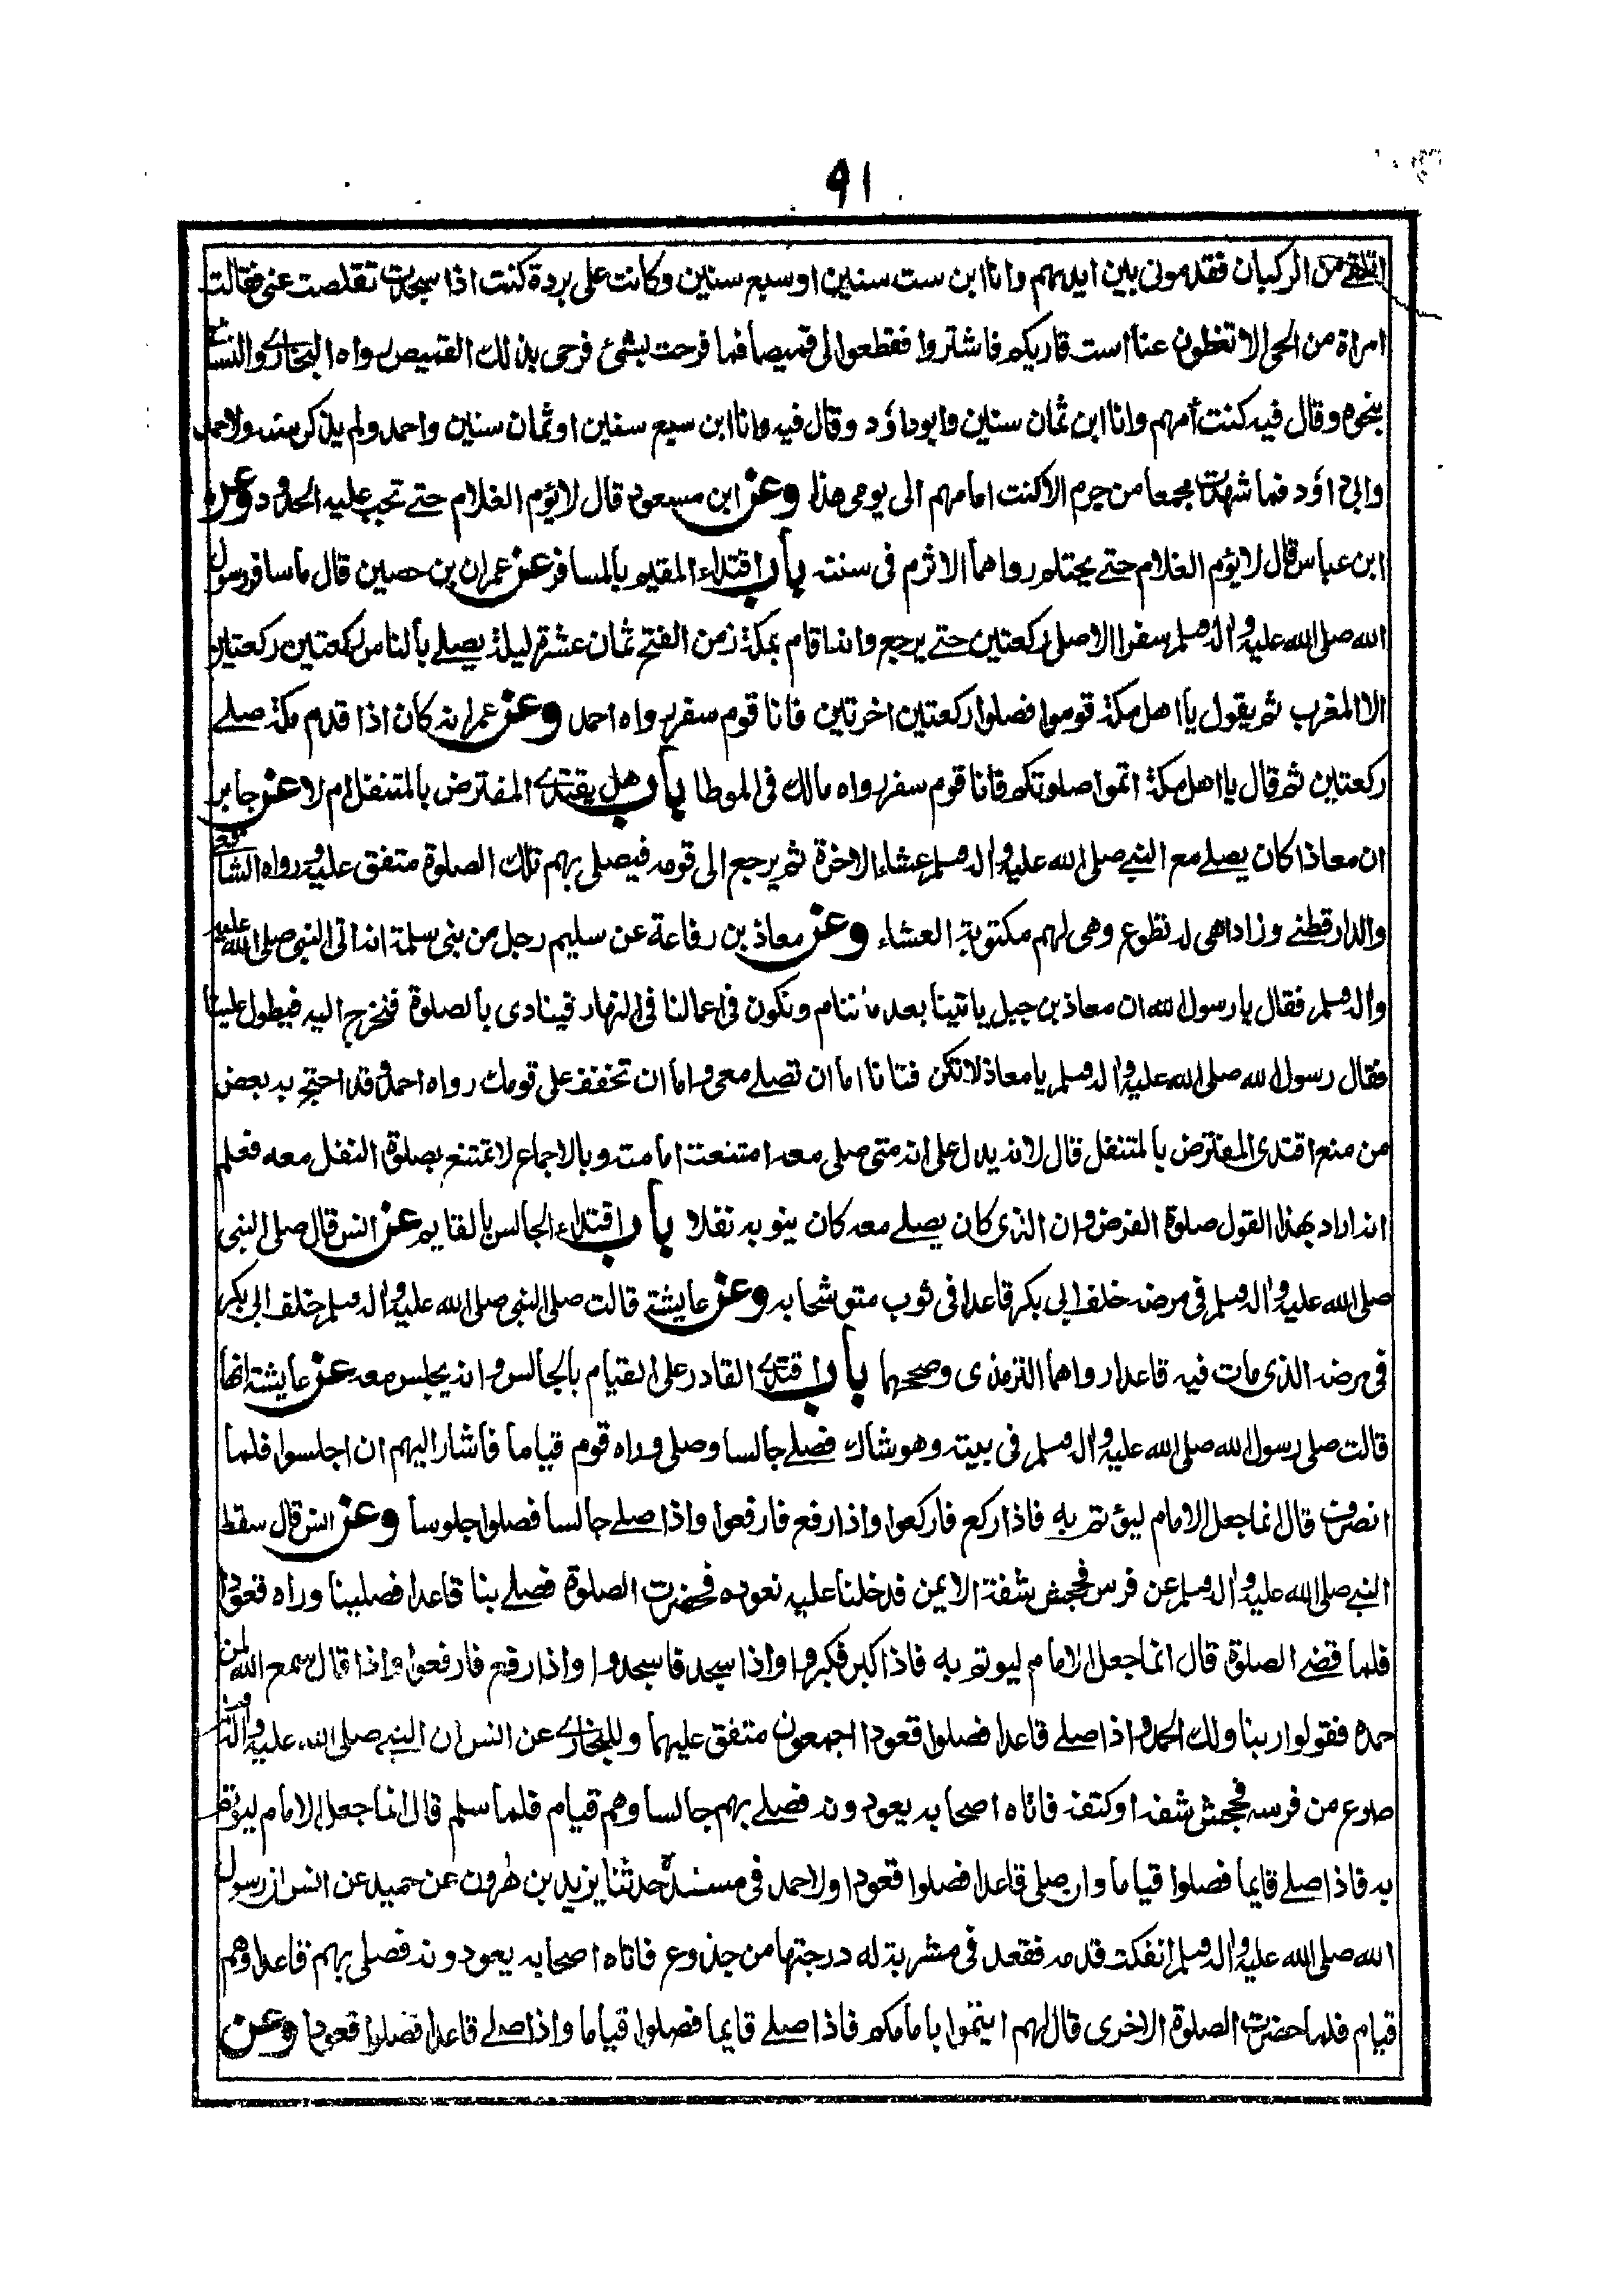 ٩١
اتلقى من الركبان فقدمونى بين ايديهم وانا ابن ست سنين او سبع سنين وكانت على بردة كنت اذا سجدت تقلصت عنى فقالت
امراة من الحى الا تغطون عنا است قاريكم فاشتروا فقطعوا لى قميصا فما فرحت بشئ فرحى بذلك القميص رواه البخارى والنسائى
بنحوه وقال فيه كنت أمهم وانا ابن ثمان سنين وابوداؤد وقال فيه وانا ابن سبع سنين او ثمان سنين واحمد ولم يذكر سنه ولاحمد
وابى داؤد فما شهدت مجمعا من جرم الا كنت امامهم الى يومى هذا وعن ابن مسعود قال لا يؤم الغلام حتى تجب عليه الحدود وعن
ابن عباس قال لا يؤم الغلام حتى يحتلم رواهما الاثرم فى سننه باب اقتداء المقيم بالمسافر عن عمران بن حصين قال ما سافر رسول
الله صلى الله عليه واله وسلم سفرا الا صلى ركعتين حتى يرجع وانه اقام بمكة زمن الفتح ثمان عشرة ليلة يصلى بالناس ركعتين ركعتين
الا المغرب ثم يقول يا اهل مكة قوموا فصلوا ركعتين اخرتين فانا قوم سفر رواه احمد وعن عمر انه كان اذا قدم مكة صلى
ركعتين ثم قال يا اهل مكة اتموا صلوتكم فانا قوم سفر رواه مالك فى الموطا باب هل يقتدى المفترض بالمتنفل ام لا عن جابر
ان معاذا كان يصلى مع النبى صلى الله عليه واله وسلم عشاء الاخرة ثم يرجع الى قومه فيصلى بهم تلك الصلوة متفق عليه ورواه الشافعى
والدارقطنى وزادا هى له تطوع وهى لهم مكتوبة العشاء وعن معاذ بن رفاعة عن سليم رجل من بنى سلمة انه اتى النبى صلى الله عليه
واله وسلم فقال يا رسول الله ان معاذ بن جبل ياتينا بعد ما ننام ونكون فى اعمالنا فى النهار فينادى بالصلوة فنخرج اليه فيطول علينا
فقال رسول الله صلى الله عليه واله وسلم يا معاذ لا تكن فتانا اما ان تصلى معى واما ان تخفف على قومك رواه احمد وقد احتج به بعض
من منع اقتدى المفترض بالمتنفل قال لانه يدل على انه متى صلى معه امتنعت امامته وبالاجماع لا تمتنع بصلوة النفل معه فعلم
انه اراد بهذا القول صلوة الفرض وان الذى كان يصلى معه كان ينويه نفلا باب اقتداء الجالس بالقايم عن انس قال صلى النبى
صلى الله عليه واله وسلم فى مرضه خلف ابى بكر قاعدا فى ثوب متوشحا به وعن عايشة قالت صلى النبى صلى الله عليه واله وسلم خلف ابى بكر
فى مرضه الذى مات فيه قاعدا رواهما الترمذى وصححهما باب اقتدى القادر على القيام بالجالس وانه يجلس معه عن عايشة انها
قالت صلى رسول الله صلى الله عليه واله وسلم فى بيته وهو شاك فصلى جالسا وصلى وراه قوم قياما فاشار اليهم ان اجلسوا فلما
انصرف قال انما جعل الامام ليؤتم به فاذا ركع فاركعوا واذا رفع فارفعوا واذا صلى جالسا فصلوا جلوسا وعن انس قال سقط
النبى صلى الله عليه واله وسلم عن فرس فجحش شقه الايمن فدخلنا عليه نعوده فحضرت الصلوة فصلى بنا قاعدا فصلينا وراه قعودا
فلما قضى الصلوة قال انما جعل الامام ليوتم به فاذا كبر فكبروا واذا سجد فاسجدوا واذا رفع فارفعوا واذا قال سمع الله لمن
حمده فقولوا ربنا ولك الحمد واذا صلى قاعدا فصلوا قعودا اجمعون متفق عليهما وللبخارى عن انس ان النبى صلى الله عليه واله وسلم
صرع من فرسه فجحش شقه او كتفه فاتاه اصحابه يعودونه فصلى بهم جالسا وهم قيام فلما سلم قال انما جعل الامام ليؤتم
به فاذا صلى قايما فصلوا قياما وان صلى قاعدا فصلوا قعودا ولاحمد فى مسنده حدثنا يزيد بن هرون عن حميد عن انس ان رسول
الله صلى الله عليه واله وسلم انفكت قدمه فقعد فى مشربة له درجتها من جذوع فاتاه اصحابه يعودونه فصلى بهم قاعدا وهم
قيام فلما حضرت الصلوة الاخرى قال لهم ايتموا بامامكم فاذا صلى قايما فصلوا قياما واذا صلى قاعدا فصلوا قعودا وعن